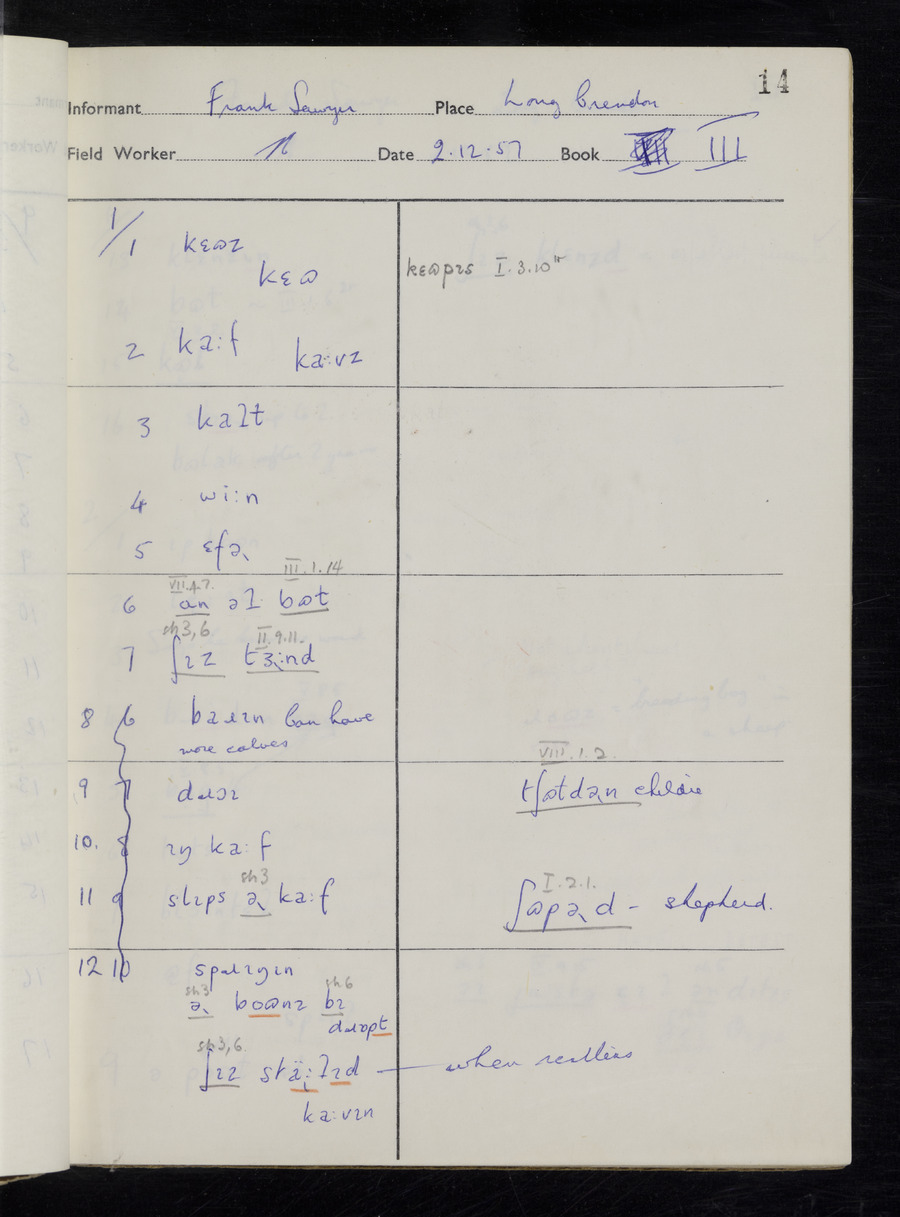 14
Informant Frank Sawyer Place Long Crendon
Field Worker Date 2.12.57 Book III
1/1 kɛɷz
kɛɷ kɛɷpɪs I.3.10
2 ka:f
ka:vz
3 kaɫt
4 wi:n
5 ɛfəʅ
VII.4.7. III.1.14
6 an əɫ bɷt
sh3,6. II.9.11.
7 ʃɪz tɜʅ:nd
8 6 baɹɪn Can have
more calves
VIII.1.2.
9 7 tʃɒtdəʅn children
10. 8 ɪŋ ka:f
sh3 I.2.1.
11 9 slɪps əʅ ka:f ʃɷpəʅd – shepherd.
12 10
sh3 sh6
əʅ boɷnz bɪ
sh3,6.
ʃɪz
ka:vɪn